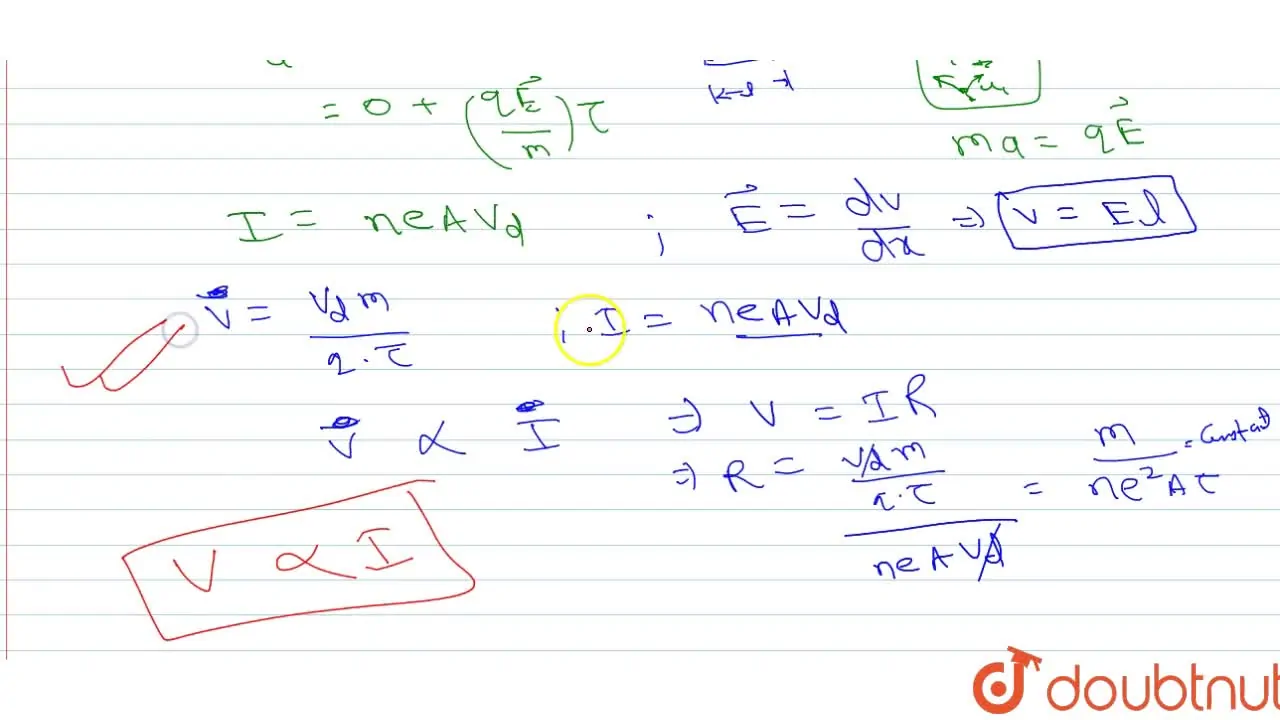 = 0 + (qE⃗/m)τ
ma = qE⃗
I = neAVd ; E⃗ = dv/dx ⇒ V = El
V = Vd m / q.τ ; I = neAVd
V ∝ I ⇒ V = IR
⇒ R = (Vd m / q.τ) / neAVd = m / ne²Aτ = Constant
V ∝ I
doubtnut